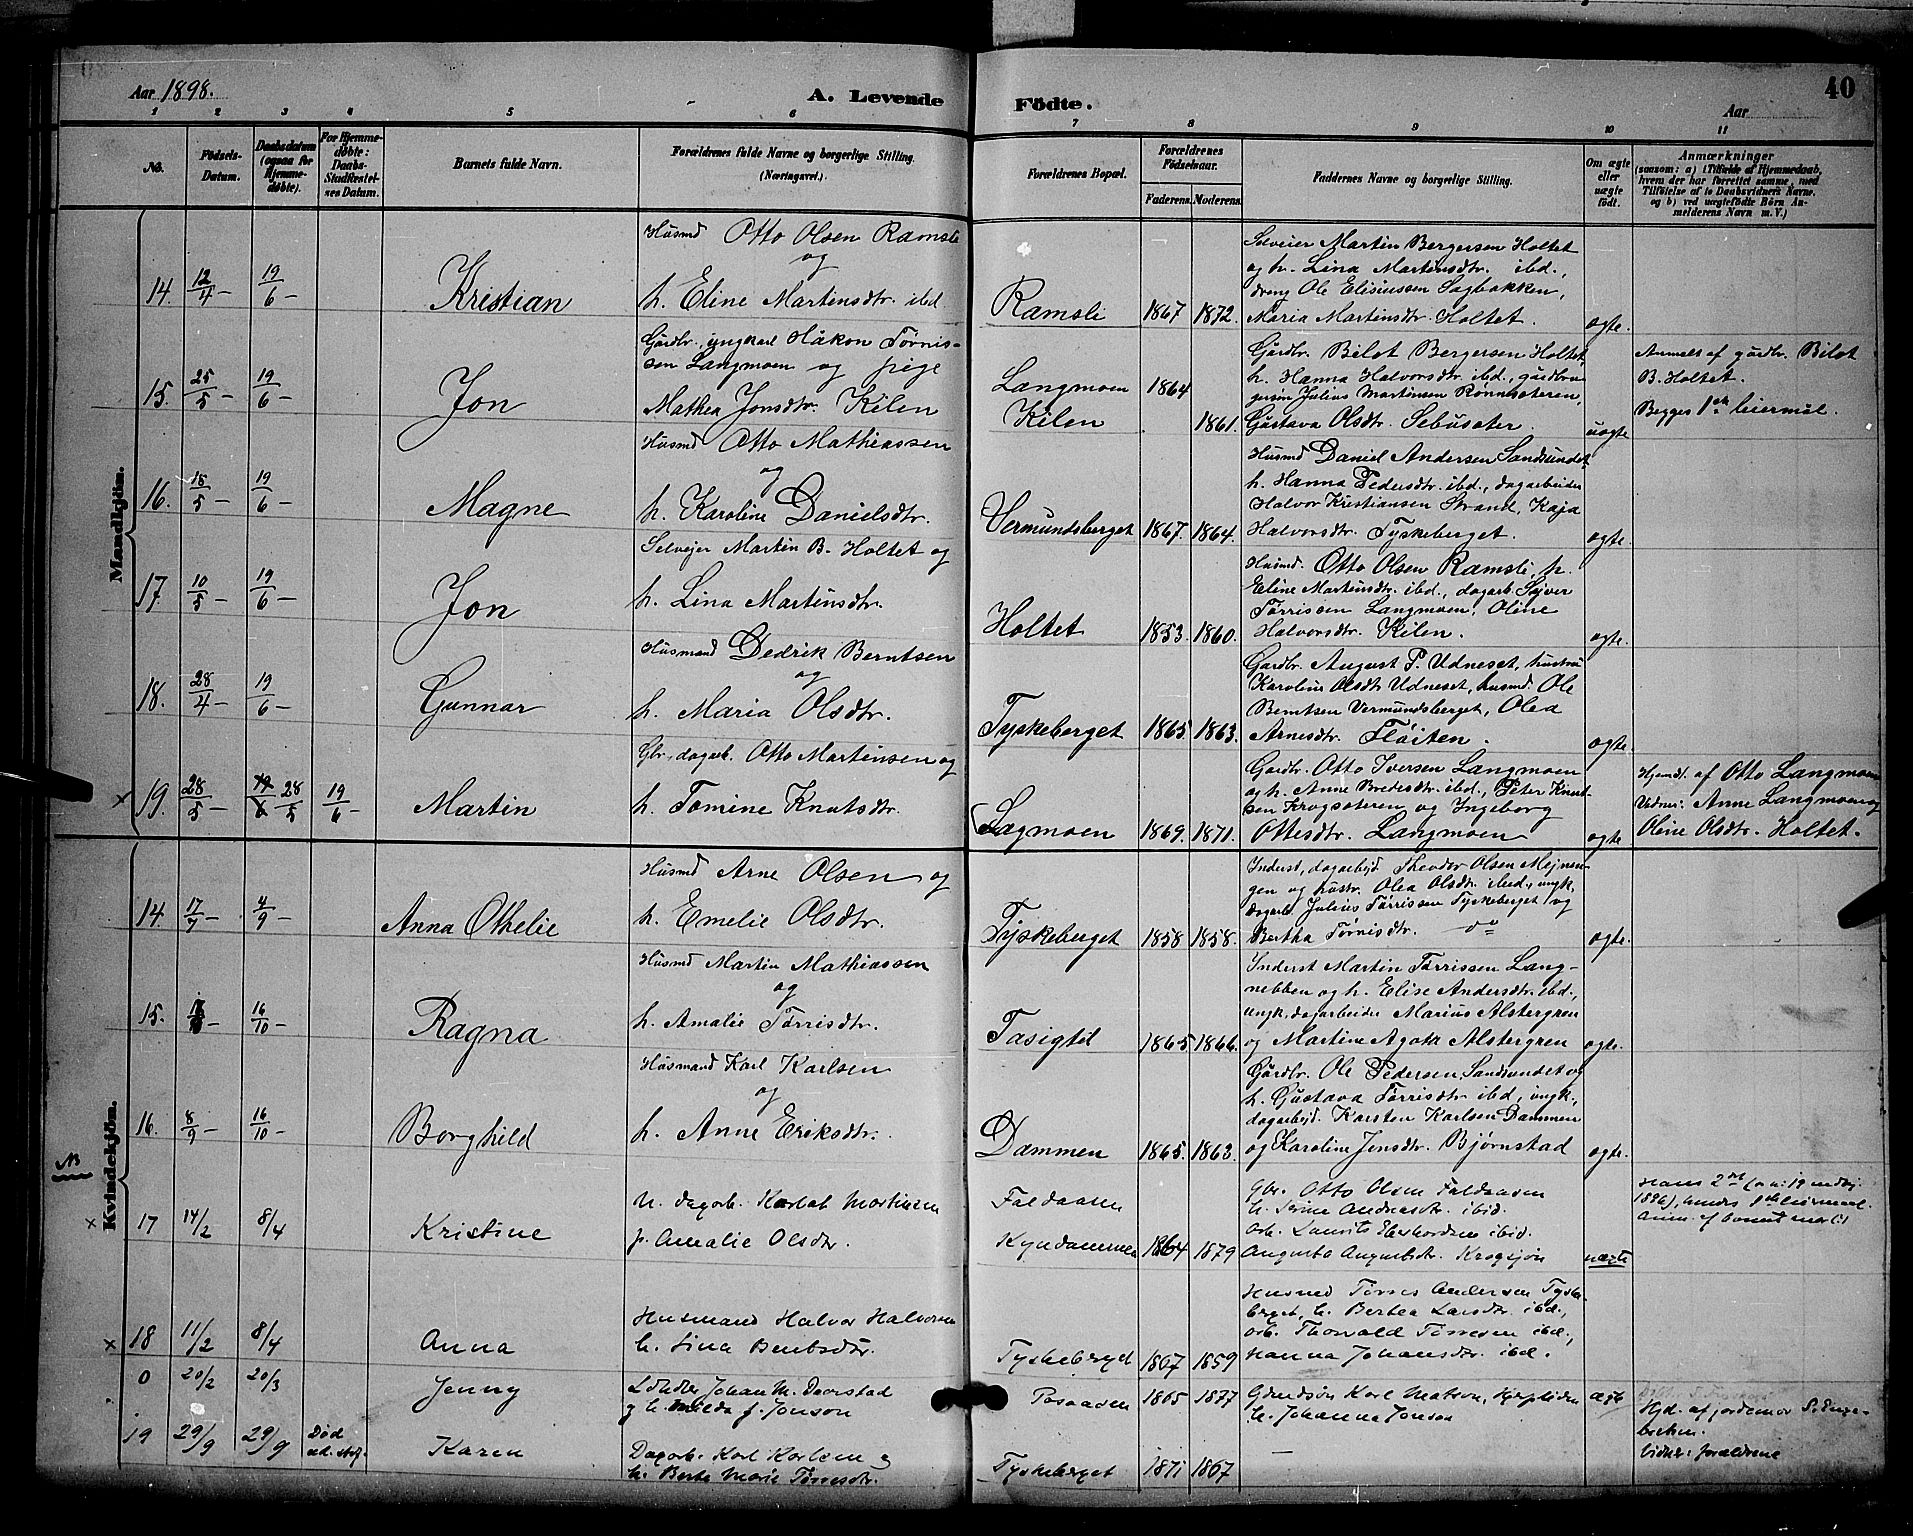 Aar 1898.
A. Levende
Fødte.
Aar
40
1 2 3 4 5 6 7 8 9 10 11
No.
Fødsels-
Datum.
Daabsdatum
(ogsaa for
Hjemme-
døbte).
For Hjemme-
døbte:
Daabs-
Stadfæstel-
ses Datum.
Barnets fulde Navn.
Forældrenes fulde Navne og borgerlige Stilling.
(Næringsvei.)
Forældrenes Bopæl.
Forældrenes
Fødselsaar.
Faderens. Moderens.
Faddernes Navne og borgerlige Stilling.
Om ægte
eller
uægte
født.
Anmærkninger
(saasom: a) i Tilfælde af Hjemmedaab,
hvem der har forrettet samme, med
Tilføielse af to Daabsvidners Navne.
og b) ved uægtefødte Børn An-
melderens Navn m. V.)
Mandkjøn.
14. 12/4 – 19/6 – Kristian
Husmd Otto Olsen Ramsli
og
h. Eline Martinsdtr. ibd
Ramsli 1867 1872.
Selveier Martin Bergersen Holtet
og h. Lina Martinsdtr. ibd.,
dreng Ole Elisiussen Sagbakken,
Maria Martinsdtr. Holtet.
ægte.
15. 25/5 – 19/6 – Jon
Gårdbr., ungkarl Håkon Tørris-
sen Langmoen og pige
Mathea Jonsdtr. Kilen
Langmoen 1864
Kilen 1861.
Gårdbr. Bilot Bergersen Holtet,
h. Hanna Halvorsdtr. ibd., gårdbru-
gersøn Julius Martinsen Rønnsæteren,
Gustava Olsdtr. Sebusæter.
uægte
Anmeldt af gårdbr. Bilot
B. Holtet.
Begges 1ste leiermål.
16. 15/5 – 19/6 – Magne
Husmd Otto Mathiassen
og
h. Karoline Danielsdtr.
Vermundsberget 1867. 1864.
Husmd Daniel Andersen Sandsundet
h. Hanna Pedersdtr. ibd., dagarbeider
Halvor Kristiansen Strand, Kaja
Halvorsdtr. Tyskeberget.
ægte.
17. 10/5 – 19/6 – Jon
Selvejer Martin B. Holtet og
h. Lina Martinsdtr.
Holtet 1853. 1860.
Husmd. Otto Olsen Ramsli, h.
Eline Martinsdtr. ibd., dagarb. Syver
Tørrissen Langmoen, Oline
Halvorsdtr. Kilen.
ægte.
18. 28/4 – 19/6 – Gunnar
Husmand Dedrik Berntsen
og
h. Maria Olsdtr.
Tyskeberget 1865. 1863.
Gardbr. August P. Udneset, hustru
Karoline Olsdtr Udneset, husmd. Ole
Berntsen Vermundsberget, Olea
Arnesdtr. Fløiten.
ægte.
× 19. 28/5 – 19/6 28/5 19/6 – Martin
Gbr., dagarb. Otto Martinsen og
h. Tomine Knutsdtr.
Lagmoen 1869. 1871.
Gardbr. Otto Iversen Langmoen
og h. Anne Bredesdtr. ibd., Peter Knut-
sen Krogsæteren og Ingeborg
Ottesdtr. Langmoen
ægte
Hjemdt. af Otto Langmoen
Vidner: Anne Langmoen og
Oline Olsdtr. Holtet.
Kvindekjøn.
14. 17/7 – 4/9 – Anna Othelie
Husmd Arne Olsen og
h. Emelie Olsdtr.
Tyskeberget 1858 1858.
Inderst, dagarbejd. Theodor Olsen Mejnen-
gen og hustr. Olea Olsdtr. ibid., ungk.,
dagarb. Julius Tørrissen Tyskeberget og
Bertha Tørrisdtr. do
ægte.
15. 16/10 – Ragna
Husmd Martin Mathiassen
og
h. Amalie Tørrisdtr.
Tasigtil 1865 1866.
Inderst Martin Tørrissen Lang-
nebben og h. Elise Andersdtr. ibd.,
ungk., dagarbeider Marius Alstergren
og Martine Agate Alstergren
ægte.
16. 8/9 – 16/10 – Borghild
Husmand Karl Karlsen
og
h. Anne Eriksdtr.
Dammen 1865. 1863.
Gårdbr. Ole Pedersen Sandsundet og
h. Gustava Tørrisdtr ibd, ungk.,
dagarbejd. Karsten Karlsen Dammen
og Karoline Jensdtr. Bjørnstad
ægte.
NB
× 17 14/2 8/4 Kristine
u. dagarb. Martinsen
p. Amalie Olsdtr.
Faldaasen
1864 1879
gbr. Otto Olsen Faldaasen
h. Serine Andreasdr. ibid.
arb. Laurits ibid.
Augusta Augustdr. Krogsjøn
uægte
hans 2det
1896), hendes 1ste leiermaal.
× 18 11/2 8/4 Anna
Husmand Halvor Halvorsen
h. Lina Berntsdtr.
Tyskeberget 1867 1859
Husmd Tørres Andersen Tyske-
berget, h. Bertea Larsdr. ibd.,
arb. Thorvald Tørresen ibd.,
Hanna Johansdtr. ibd.
0 20/2 20/3 Jenny
Johan M. Daarstad
og h. Milda f. Jonson
Posaasen 1865 1877
Karl Matson,
h. Johanna Jonson
ægte
19 29/9 29/9 Død
Karen
Dagarb. Karl Karlsen og
h. Berte Marie Tørresdtr.
Tyskeberget 1871 1867
—
Hjd. af jordemor S. Enge-
brethsen.
Vidner: forældrene